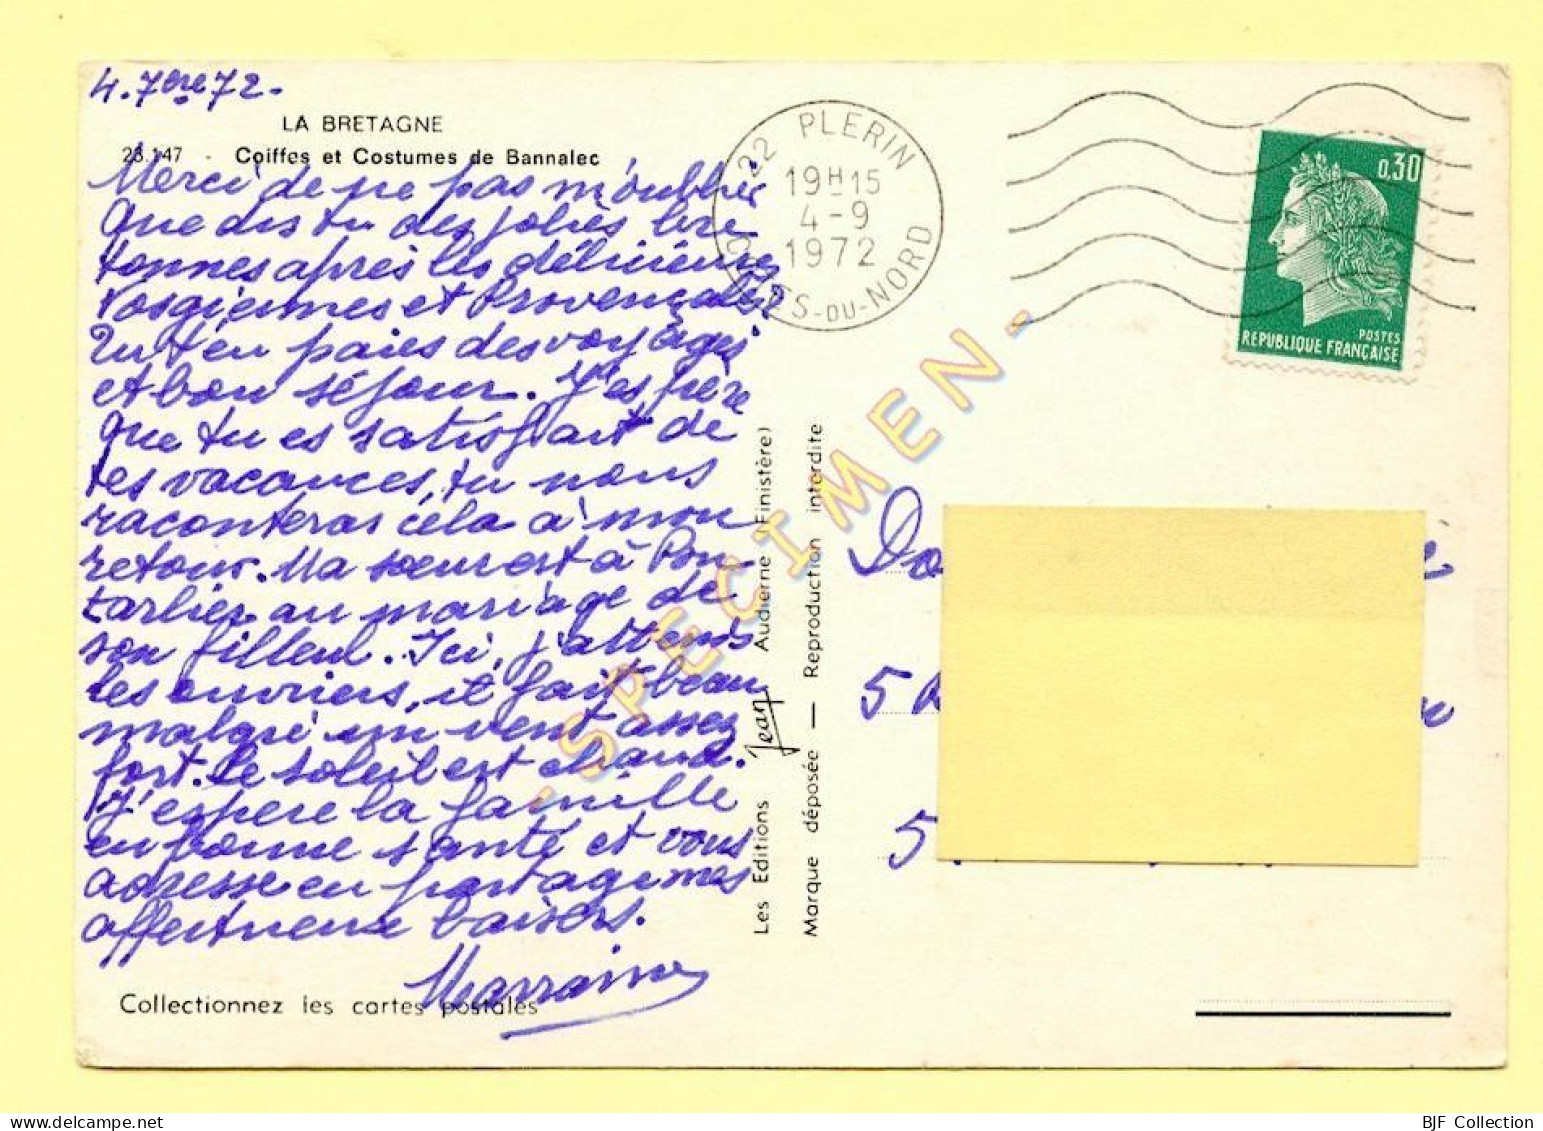 4. 7bre 72.
LA BRETAGNE
23.147 - Coiffes et Costumes de Bannalec
Merci de ne pas m'oublier
Que dis tu des jolies bre
tonnes après les délicieuses
Vosgiennes et Provençales?
Tu t'en paies des voyages
et bon séjour. J'espère
que tu es satisfait de
tes vacances, tu nous
raconteras cela à mon
retour. Ma soeur est à Pon-
tarlier au mariage de
son filleul. Ici, j'attends
les ouvriers, il fait beau
malgré un vent assez
fort. Le soleil est chaud.
J'espère la famille
en bonne santé et vous
adresse en partage mes
affectueux baisers.
Marraine
Collectionnez les cartes postales
Les Editions Jean Audierne (Finistère)
Marque déposée — Reproduction interdite
22 PLERIN
19H15
4-9
1972
COTES-DU-NORD
0,30
POSTES
REPUBLIQUE FRANÇAISE
- SPECIMEN -
Do
5
5
BJF Collection